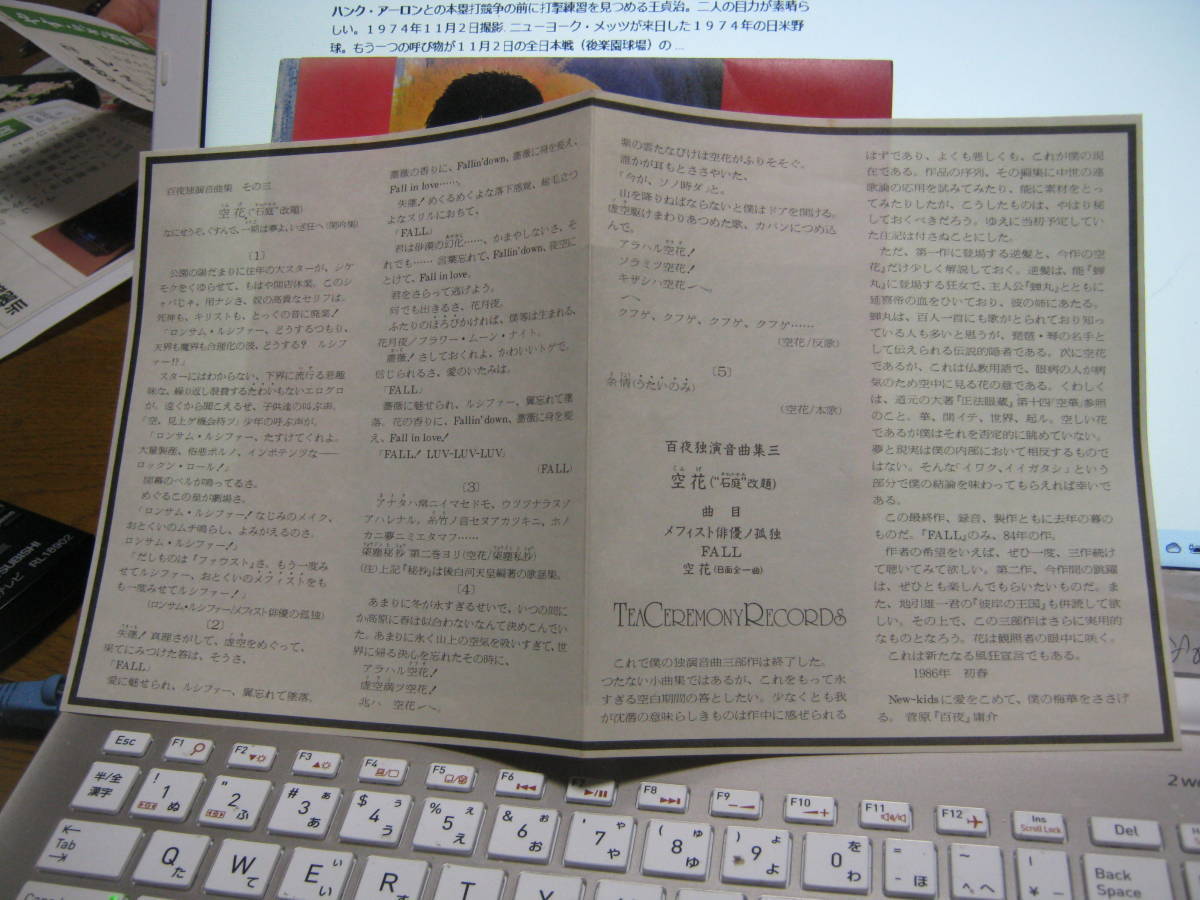 ハンク・アーロンとの本塁打競争の前に打撃練習を見つめる王貞治。二人の目力が素晴ら
しい。１９７４年１１月２日撮影. ニューヨーク・メッツが来日した１９７４年の日米野
球。もう一つの呼び物が１１月２日の全日本戦（後楽園球場）の ...
百夜独演音曲集 その三
空花("石庭"改題)
なにせうぞ、くすんで、一期は夢よ、いざ狂へ(閑吟集)
〔1〕
公園の陽だまりに往年の大スターが、シケ
モクをくゆらせて、もはや開店休業。このシ
ャバじゃ、用ナシさ、奴の高貴なセリフは。
死神も、キリストも、とっくの昔に廃業！
「ロンサム・ルシファー、どうするつもり、
天界も魔界も合理化の波、どうする？ ルシフ
ァー!?」
スターにはわからない、下界に流行る悪趣
味な、繰り返し発費するたわいもないエログロ
が。遠くから聞こえるぜ、子供達の叫ぶ声。
「空、見上ゲ機会待ツ」少年の呼ぶ声が。
「ロンサム・ルシファー、たすけてくれよ。
大量製産、俗悪ポルノ、インポテンツな――
ロックン・ロール！」
開幕のベルが鳴ってるさ。
めぐるこの星が劇場さ。
「ロンサム・ルシファー！なじみのメイク、
おとくいのムチ鳴らし、よみがえるのさ。
ロンサム・ルシファー！」
「だしものは『ファウスト』さ、もう一度み
せてルシファー、おとくいのメフィストをも
も一度みせてルシファー！」
(ロンサム・ルシファー/メフィスト俳優の孤独)
〔2〕
失蓮！真理さがして、虚空をめぐって、
果てにみつけた答は、そうさ、
「FALL」
愛に魅せられ、ルシファー、翼忘れて墜落。
薔薇の香りに、Fallin'down、薔薇に身を変え、
Fall in love……。
失蓮！めくるめくよな落下感覚、総毛立つ
よなスリルにおちて、
「FALL」
君は砂漠の幻花……、かまやしないさ、そ
れでも……言葉忘れて、Fallin'down、夜空に
とけて、Fall in love。
君をさらって逃げよう。
何でも出きるさ、花月夜。
ふたりのほろびかければ、僕等は生まれる、
花月夜/フラワー・ムーン・ナイト。
薔薇！さしておくれよ、かわいいトゲで、
信じられるさ、愛のいたみは。
「FALL」
薔薇に魅せられ、ルシファー、翼忘れて墜
落。花の香りに、Fallin'down、薔薇に身を変
え、Fall in love！
「FALL！LUV-LUV-LUV」
(FALL)
〔3〕
アナタハ常ニイマセドモ、ウツツナラヌゾ
アハレナル、糸竹ノ音セヌアカツキニ、ホノ
カニ夢ニミエタマフ……
梁塵秘抄 第二巻ヨリ(空花/梁塵私抄)
(注)上記『秘抄』は後白河天皇編著の歌謡集。
〔4〕
あまりに冬が永すぎるせいで、いつの間に
か高原に春は似合わないなんて決めこんでい
た。あまりに永く山上の空気を吸いすぎて、世
界に帰る決心を忘れたその時に、
アラハル空花！
虚空満ツ空花！
北ハ 空花へ。
紫の雲たなびけば空花がふりそそぐ。
誰かが耳もとささやいた、
「今が、ソノ時ダ」と。
山を降りねばならないと僕はドアを開ける。
虚空駆けまわりあつめた歌、カバンにつめ込
んで。
アラハル空花！
ソラミツ空花！
キザシハ空花へ。
へ
クフゲ、クフゲ、クフゲ、クフゲ……
(空花/反歌)
〔5〕
余情(うたいのみ)
(空花/本歌)
百夜独演音曲集三
空花("石庭"改題)
曲 目
メフィスト俳優ノ孤独
FALL
空花(B面全一曲)
TEACEREMONYRECORDS
これで僕の独演音曲三部作は終了した。
つたない小曲集ではあるが、これをもって永
すぎる空白期間の答としたい。少なくとも我
が沈潜の意味らしきものは作中に感ぜられる
はずであり、よくも悪しくも、これが僕の現
在である。作品の序列、その編集に中世の連
歌論の応用を試みてみたり、能に素材をとっ
てみたりしたが、こうしたものは、やはり秘
しておくべきだろう。ゆえに当初予定してい
た注記は付さぬことにした。
ただ、第一作に登場する逆髪と、今作の空
花』だけ少しく解説しておく。逆髪は、能『蝉
丸』に登場する狂女で、主人公『蝉丸』とともに
延喜帝の血をひいており、彼の姉にあたる。
蝉丸は、百人一首にも歌がとられており知っ
ている人も多いと思うが、琵琶・琴の名手と
して伝えられる伝説的隠者である。次に空花
であるが、これは仏教用語で、眼病の人が病
気のため空中に見る花の意である。くわしく
は、道元の大著『正法眼蔵』第十四『空華』参照
のこと。華、開イテ、世界、起ル。空しい花
であるが僕はそれを否定的に眺めていない。
夢と現実は僕の内部において相反するもので
はない。そんな「イワク、イイガタシ」という
部分で僕の結論を味わってもらえれば幸いで
ある。
この最終作、録音、製作ともに去年の暮の
ものだ。「FALL」のみ、84年の作。
作者の希望をいえば、ぜひ一度、三作続け
て聴いてみて欲しい。第二作、今作間の跳躍
は、ぜひとも楽しんでもらいたいものだ。ま
た、地引雄一君の『彼岸の王国』も併読して欲
しい。その上で、この三部作はさらに実用的
なものとなろう。花は観照者の眼中に咲く。
これは新たなる風狂宣言でもある。
1986年 初春
New-kidsに愛をこめて、僕の梅華をささげ
る。 菅原『百夜』庸介
RL18902
Esc F1 F2 F3 F4 F5 F6 F7 F8 F9 F10 F11 F12 Ins Scroll Lock Del
半/全 漢字 ! 1 ぬ " 2 ふ # 3 ぁ あ $ 4 ぅ う % 5 ぇ え & 6 ぉ お ' 7 ゃ や ( 8 ゅ ゆ ) 9 ょ よ 0 を わ = - ほ ~ ^ へ | ¥ ー Back Space
Tab Q た W て E ぃ い R T Y